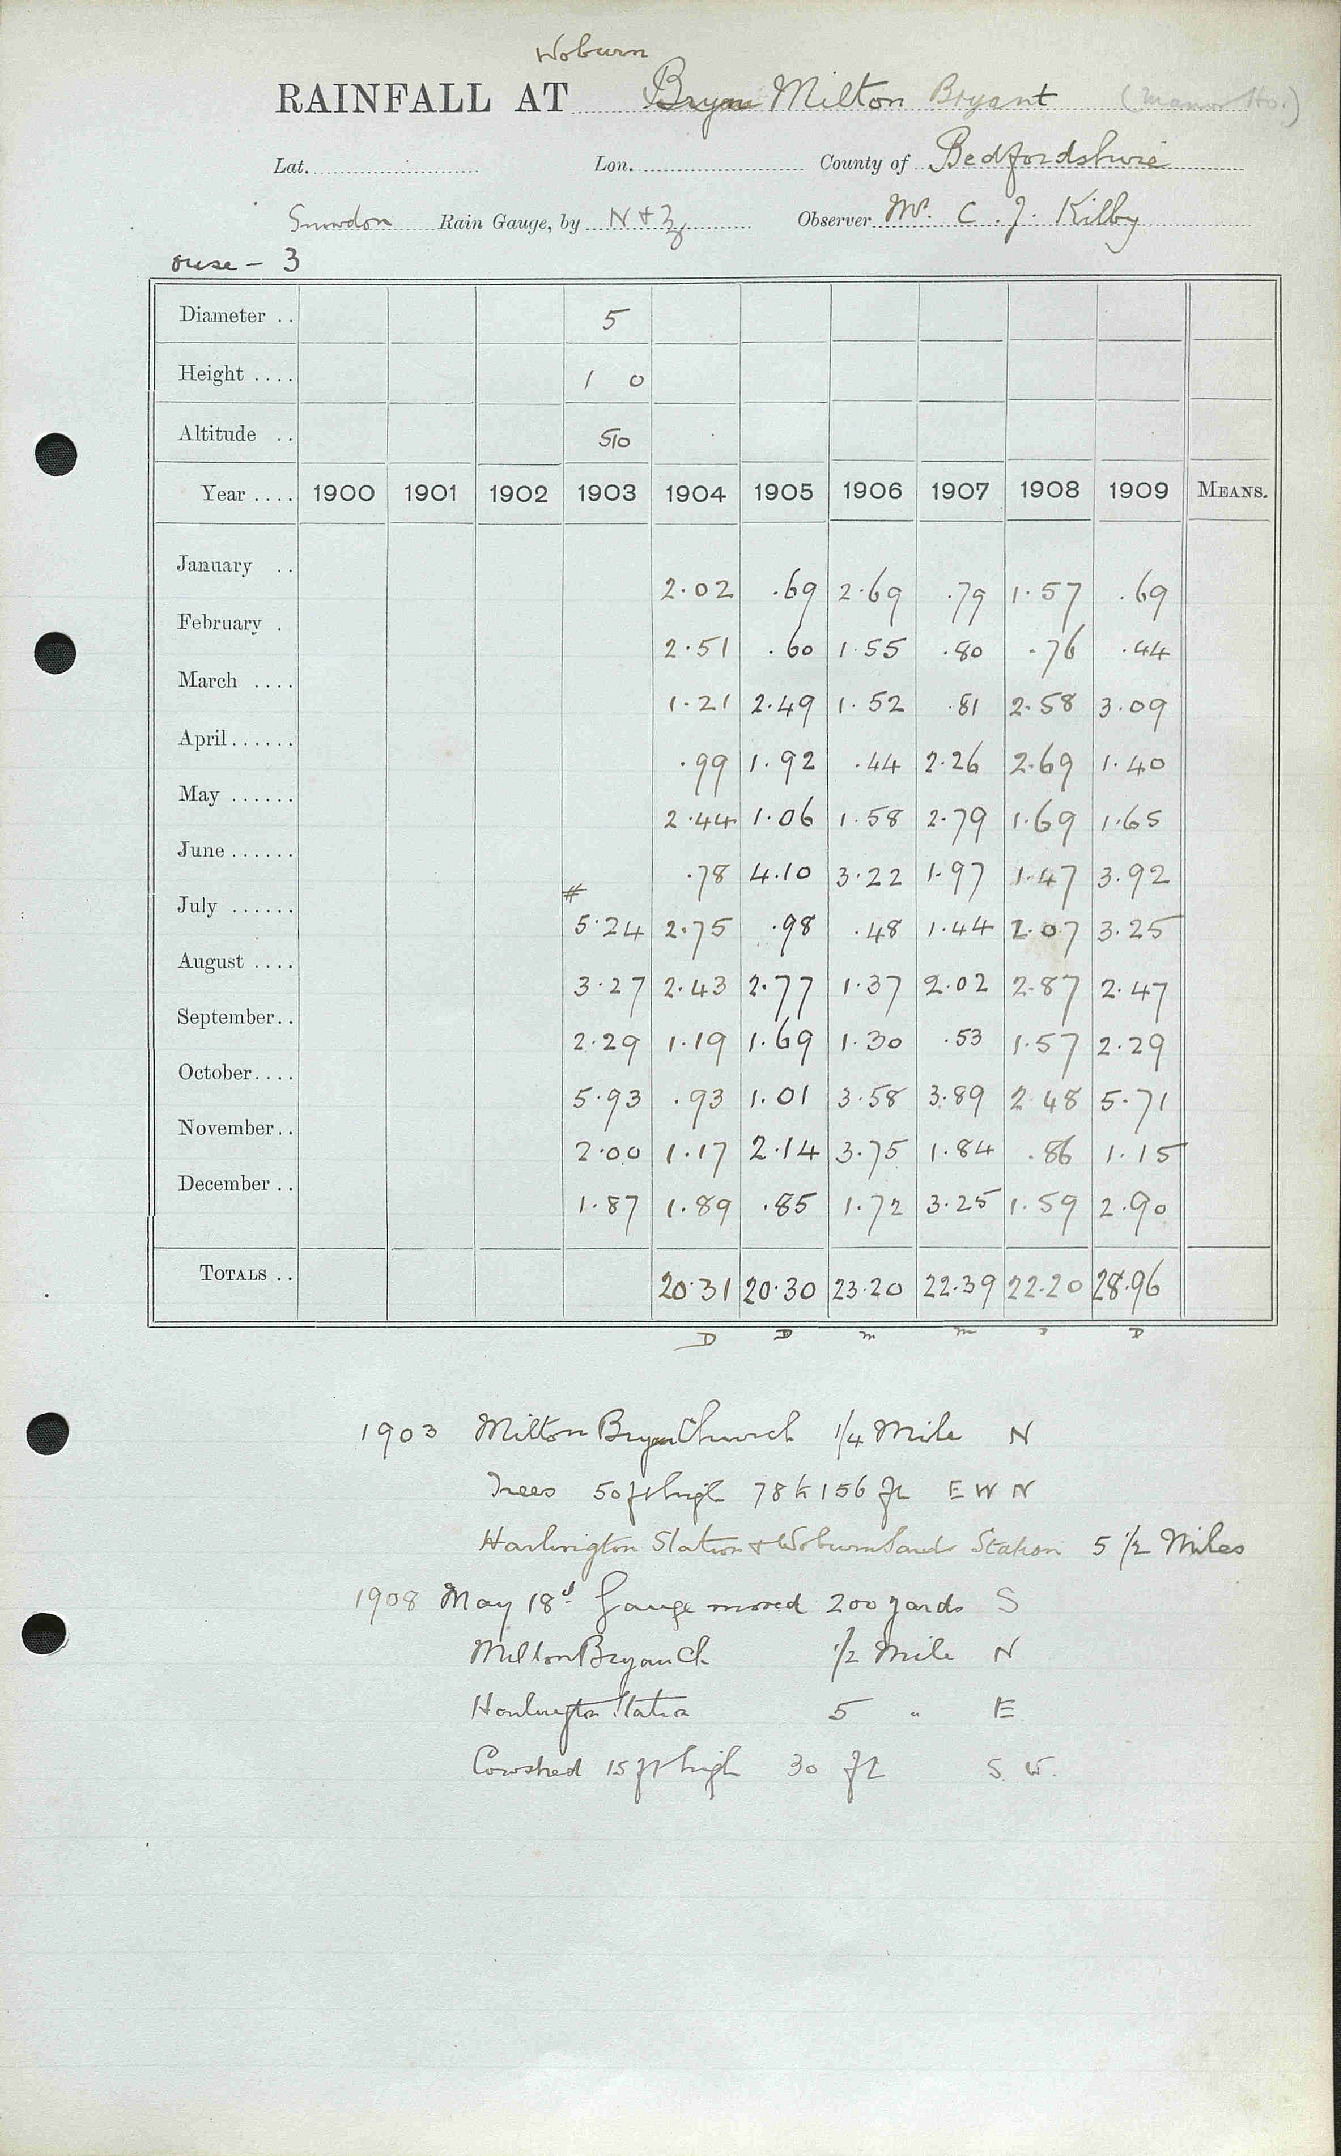 Woburn
RAINFALL AT Bryan Milton Bryant (Manor Ho.)
Lat. Lon. County of Bedfordshire
Snowdon Rain Gauge, by N & Z Observer Mr. C. J. Kilby
ouse - 3
Diameter .. 5
Height .... 1 0
Altitude .. 510
Year .... 1900 1901 1902 1903 1904 1905 1906 1907 1908 1909 MEANS.
January .. 2.02 .69 2.69 .79 1.57 .69
February . 2.51 .60 1.55 .80 .76 .44
March .... 1.21 2.49 1.52 .81 2.58 3.09
April...... .99 1.92 .44 2.26 2.69 1.40
May ...... 2.44 1.06 1.58 2.79 1.69 1.65
June...... .78 4.10 3.22 1.97 1.47 3.92
#
July ...... 5.24 2.75 .98 .48 1.44 2.07 3.25
August .... 3.27 2.43 2.77 1.37 2.02 2.87 2.47
September.. 2.29 1.19 1.69 1.30 .53 1.57 2.29
October.... 5.93 .93 1.01 3.58 3.89 2.48 5.71
November.. 2.00 1.17 2.14 3.75 1.84 .86 1.15
December .. 1.87 1.89 .85 1.72 3.25 1.59 2.90
TOTALS .. 20.31 20.30 23.20 22.39 22.20 28.96
D D m m D
1903 Milton Bryan Church 1/4 Mile N
Trees 50 ft high 78 to 156 ft E W N
Harlington Station & Woburn Sands Station 5 1/2 Miles
1908 May 18d Gauge moved 200 yards S
Milton Bryan Ch 1/2 Mile N
Harlington Station 5 " E
Cowshed 15 ft high 30 ft S.W.